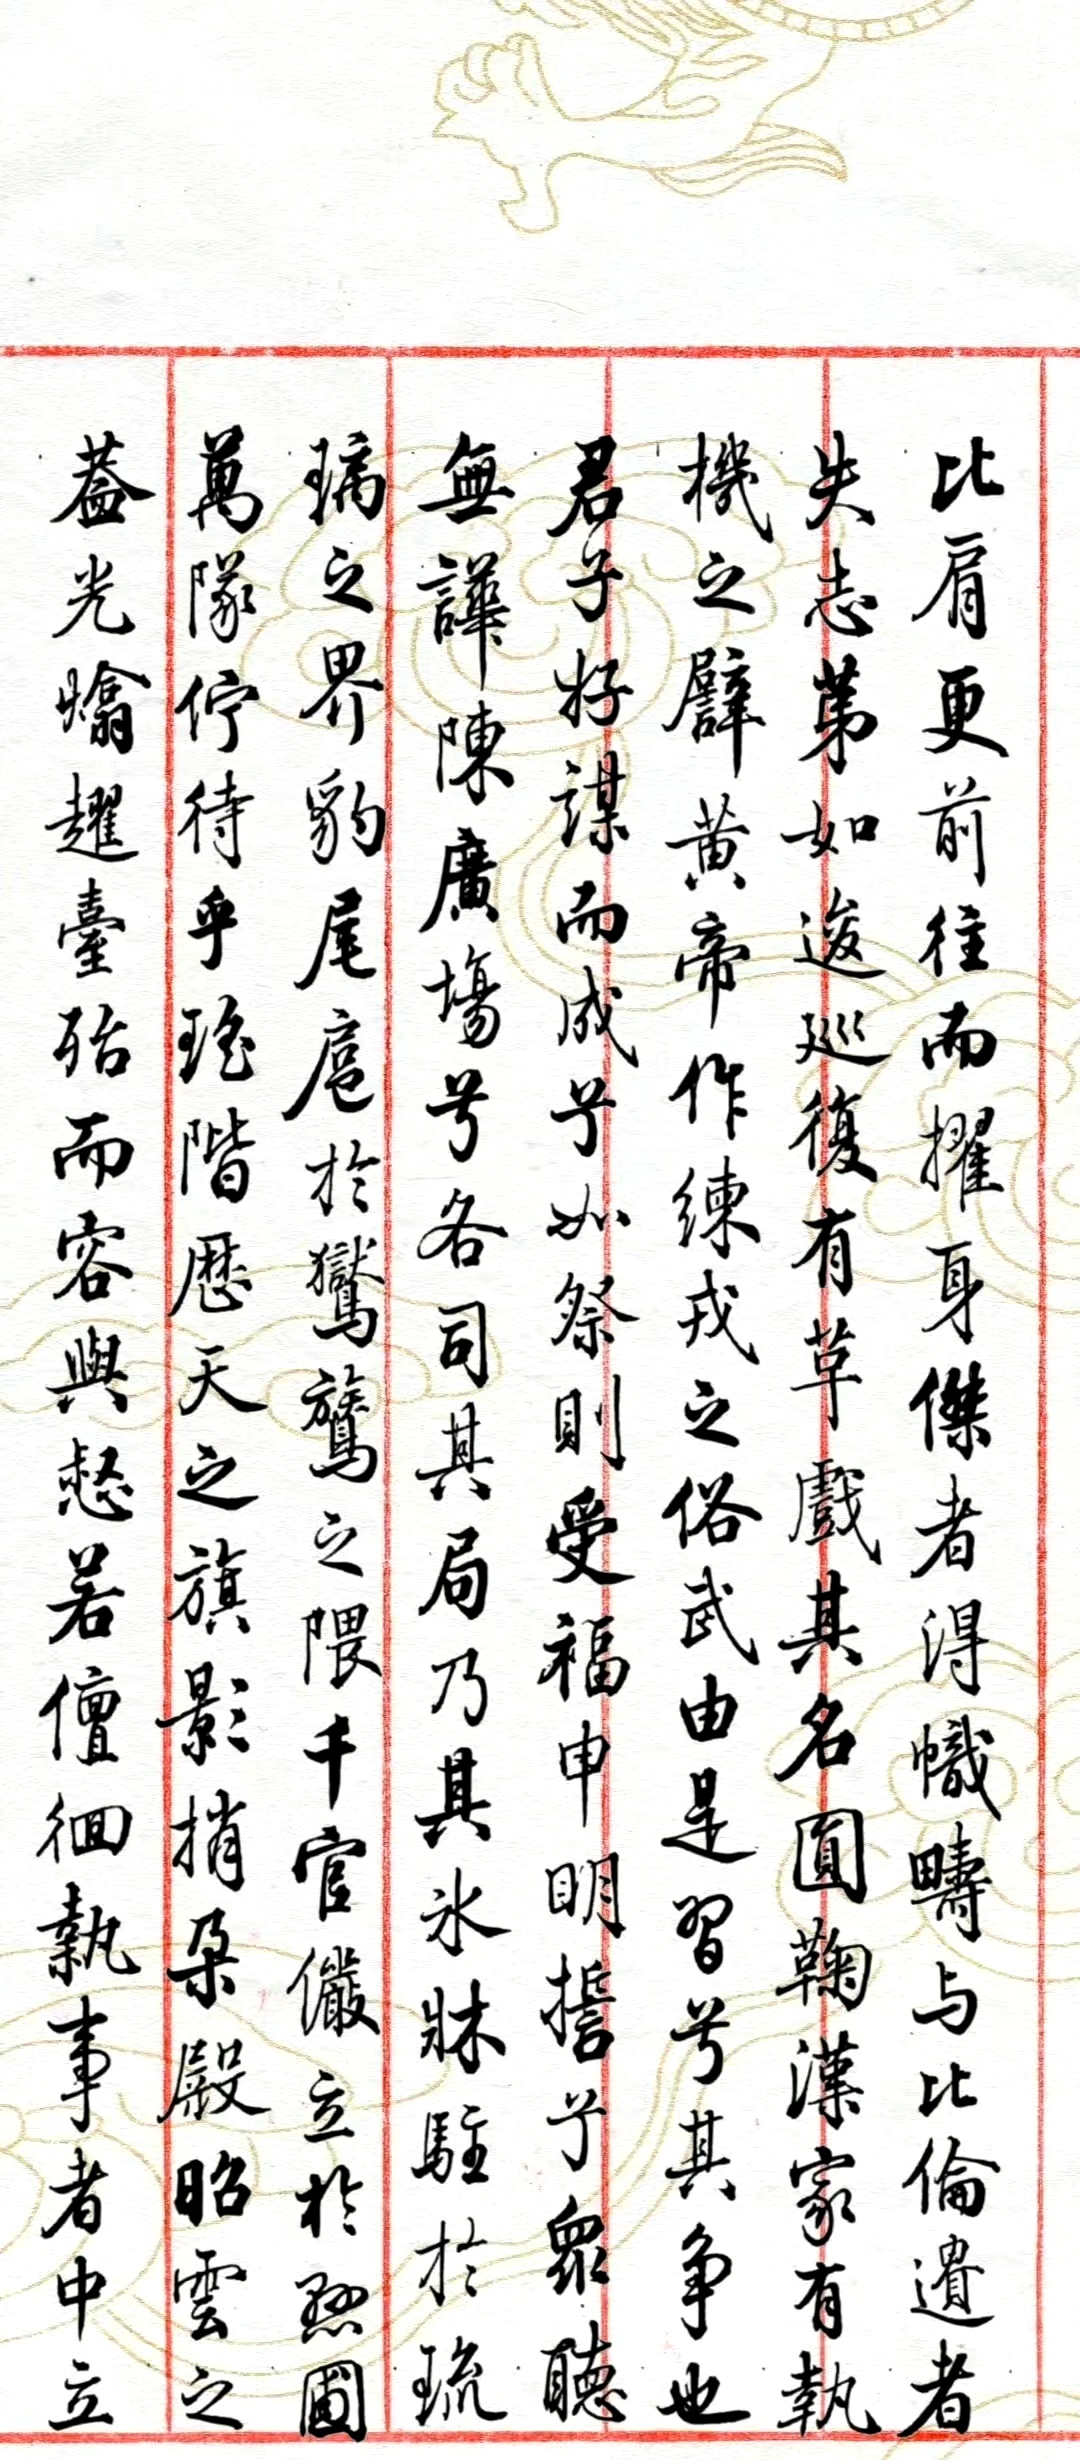 比肩更前往而擢身傑者得幟疇与比倫遺者
失志第如逡巡復有草戲其名圓鞠漢家有執
機之譬黄帝作練戎之俗武由是習兮其争也
君子好謀而成兮如祭則受福申明誓兮衆聽
無譁陳廣場兮各司其局乃其氷牀駐於琉
璃之界豹尾扈於鸑鷟之隈千官儼立於懸圃
萬隊佇待乎瑤階歷天之旗影捎朶殿昭雲之
蓋光爚趯臺殆而容與憖若儃徊執事者中立